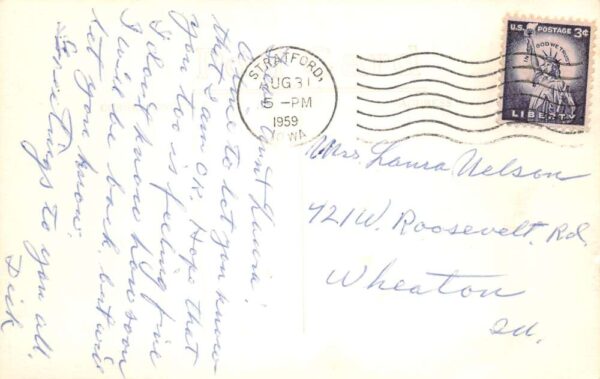 Dear Aunt Laura!
A line to let you know
that I am OK. Hope that
you too is feeling fine
I don't know how soon
I will be back but will
let you know.
Greetings to you all,
Dick
STRATFORD,
AUG 31
5 -PM
1959
IOWA
U.S. POSTAGE 3¢
IN GOD WE TRUST
LIBERTY
Mrs Laura Nelson
421 W. Roosevelt. Rd.
Wheaton
Ill.